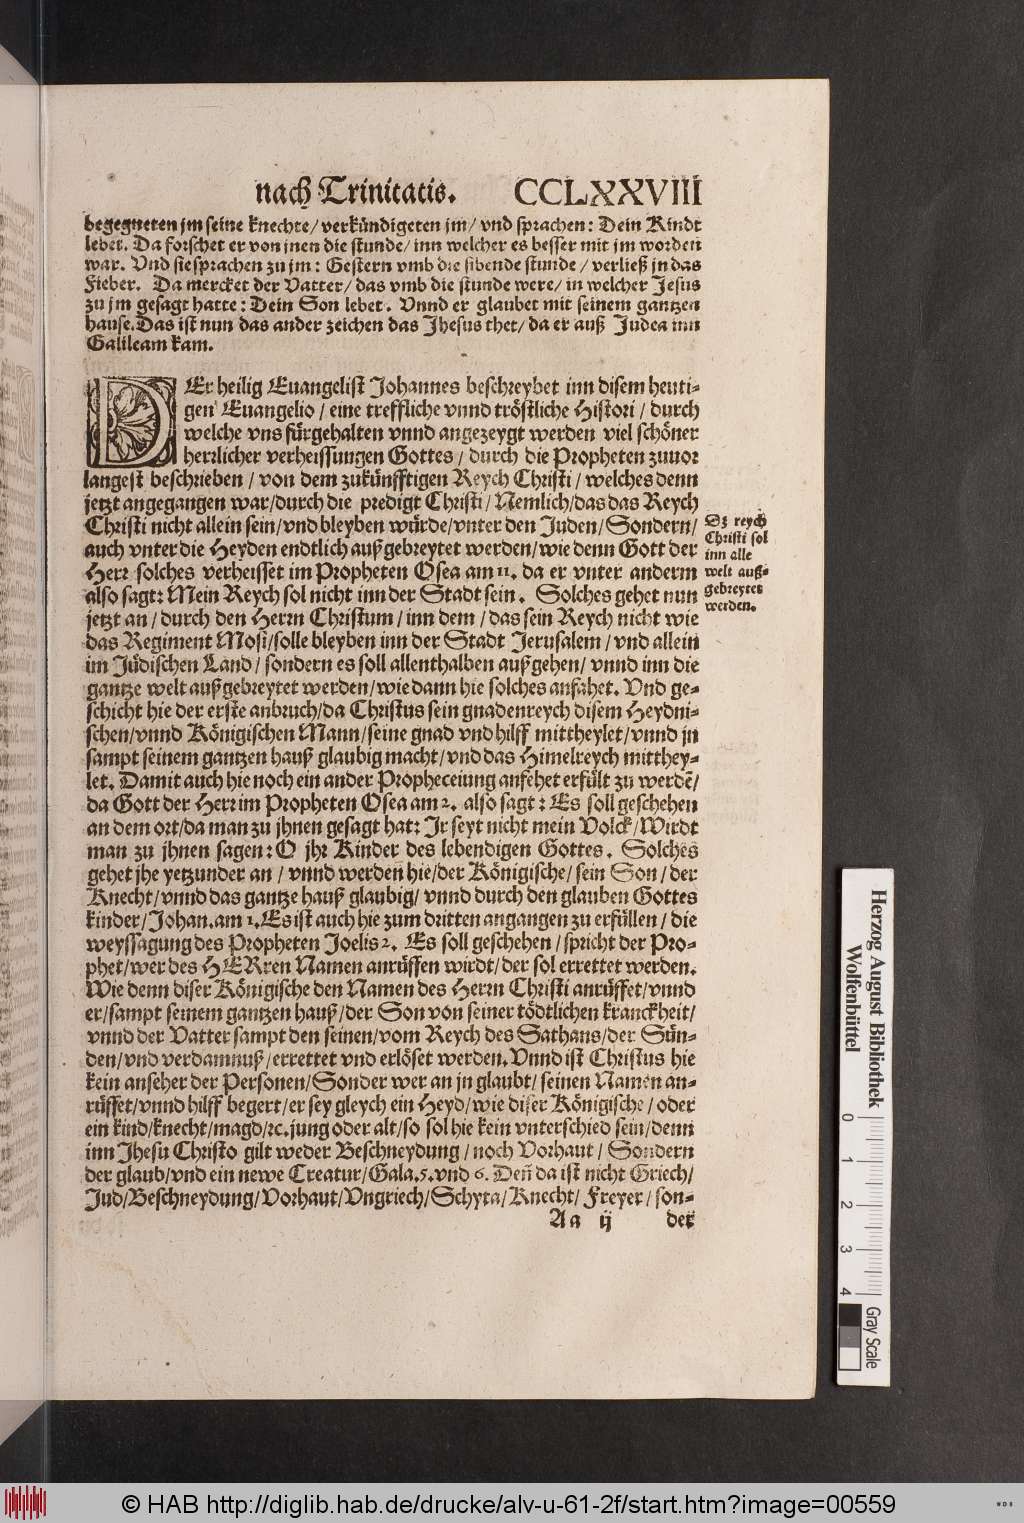 nach Trinitatis. CCLXXVIII
begegneten jm seine knechte/ verkündigeten jm/ vnd sprachen: Dein Kindt
lebet. Da forschet er von jnen die stunde/ inn welcher es besser mit jm worden
war. Vnd sie sprachen zu jm: Gestern vmb die sibende stunde/ verließ jn das
Fieber. Da mercket der Vatter/ das vmb die stunde were/ in welcher Jesus
zu jm gesagt hatte: Dein Son lebet. Vnnd er glaubet mit seinem gantzen
hause. Das ist nun das ander zeichen das Jhesus thet/ da er auß Judea inn
Galileam kam.
DEr heilig Euangelist Johannes beschreybet inn disem heuti-
gen Euangelio/ eine treffliche vnnd tröstliche Histori/ durch
welche vns fürgehalten vnnd angezeygt werden viel schöner
herrlicher verheissungen Gottes/ durch die Propheten zuuor
langest beschrieben/ von dem zukünfftigen Reych Christi/ welches denn
jetzt angegangen war/ durch die predigt Christi/ Nemlich/ das das Reych
Christi nicht allein sein/ vnd bleyben würde/ vnter den Juden/ Sondern/
auch vnter die Heyden endtlich außgebreytet werden/ wie denn Gott der
Herr solches verheisset im Propheten Osea am 11. da er vnter anderm
also sagt: Mein Reych sol nicht inn der Stadt sein. Solches gehet nun
jetzt an/ durch den Herrn Christum/ inn dem/ das sein Reych nicht wie
das Regiment Mosi/ solle bleyben inn der Stadt Jerusalem/ vnd allein
im Jüdischen Land/ sondern es soll allenthalben außgehen/ vnnd inn die
gantze welt außgebreytet werden/ wie dann hie solches anfahet. Vnd ge-
schicht hie der erste anbruch/ da Christus sein gnadenreych disem Heydni-
schen/ vnnd Königischen Mann/ seine gnad vnd hilff mittheylet/ vnnd jn
sampt seinem gantzen hauß glaubig macht/ vnd das Himelreych mitthey-
let. Damit auch hie noch ein ander Propheceiung anfehet erfült zu werdē/
da Gott der Herr im Propheten Osea am 2. also sagt: Es soll geschehen
an dem ort/ da man zu jhnen gesagt hat: Jr seyt nicht mein Volck/ Wirdt
man zu jhnen sagen: O jhr Kinder des lebendigen Gottes. Solches
gehet jhe yetzunder an/ vnnd werden hie/ der Königische/ sein Son/ der
Knecht/ vnnd das gantze hauß glaubig/ vnnd durch den glauben Gottes
kinder/ Johan. am 1. Es ist auch hie zum dritten angangen zu erfüllen/ die
weyssagung des Propheten Joelis 2. Es soll geschehen/ spricht der Pro-
phet/ wer des HERren Namen anrüffen wirdt/ der sol errettet werden.
Wie denn diser Königische den Namen des Herrn Christi anrüffet/ vnnd
er/ sampt seinem gantzen hauß/ der Son von seiner tödtlichen kranckheit/
vnnd der Vatter sampt den seinen/ vom Reych des Sathans/ der Sün-
den/ vnd verdamnuß/ errettet vnd erlöset werden. Vnnd ist Christus hie
kein anseher der Personen/ Sonder wer an jn glaubt/ seinen Namen an-
rüffet/ vnnd hilff begert/ er sey gleych ein Heyd/ wie diser Königische/ oder
ein kind/ knecht/ magd/ ꝛc. jung oder alt/ so sol hie kein vnterschied sein/ denn
inn Jhesu Christo gilt weder Beschneydung/ noch Vorhaut/ Sondern
der glaub/ vnd ein newe Creatur/ Gala. 5. vnd 6. Deñ da ist nicht Griech/
Jud/ Beschneydung/ Vorhaut/ Vngriech/ Schyta/ Knecht/ Freyer/ son-
Aa ij der
Dz reych
Christi sol
inn alle
welt auß-
gebreytet
werden.
Herzog August Bibliothek
Wolfenbüttel
0 1 2 3 4
Gray Scale
© HAB http://diglib.hab.de/drucke/alv-u-61-2f/start.htm?image=00559